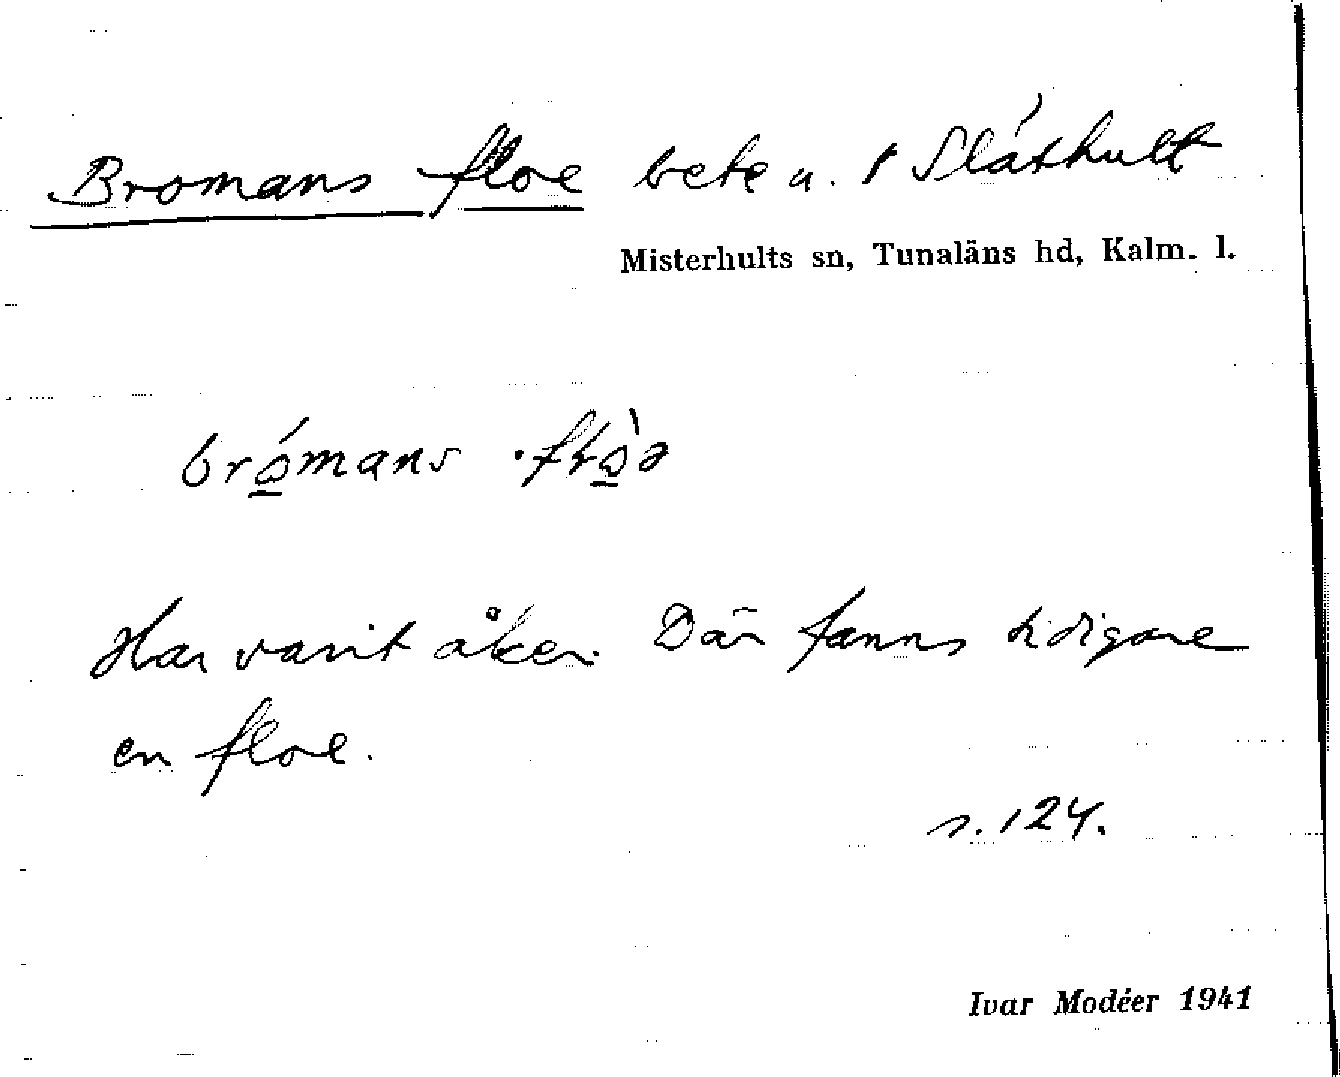 Bromans floe bete u. t Slåthult
Misterhults sn, Tunaläns hd, Kalm. l.
brǫ́mans ·flǫ̀ə
Har varit åker. Där fanns tidigare
en floe.
s. 124.
Ivar Modéer 1941